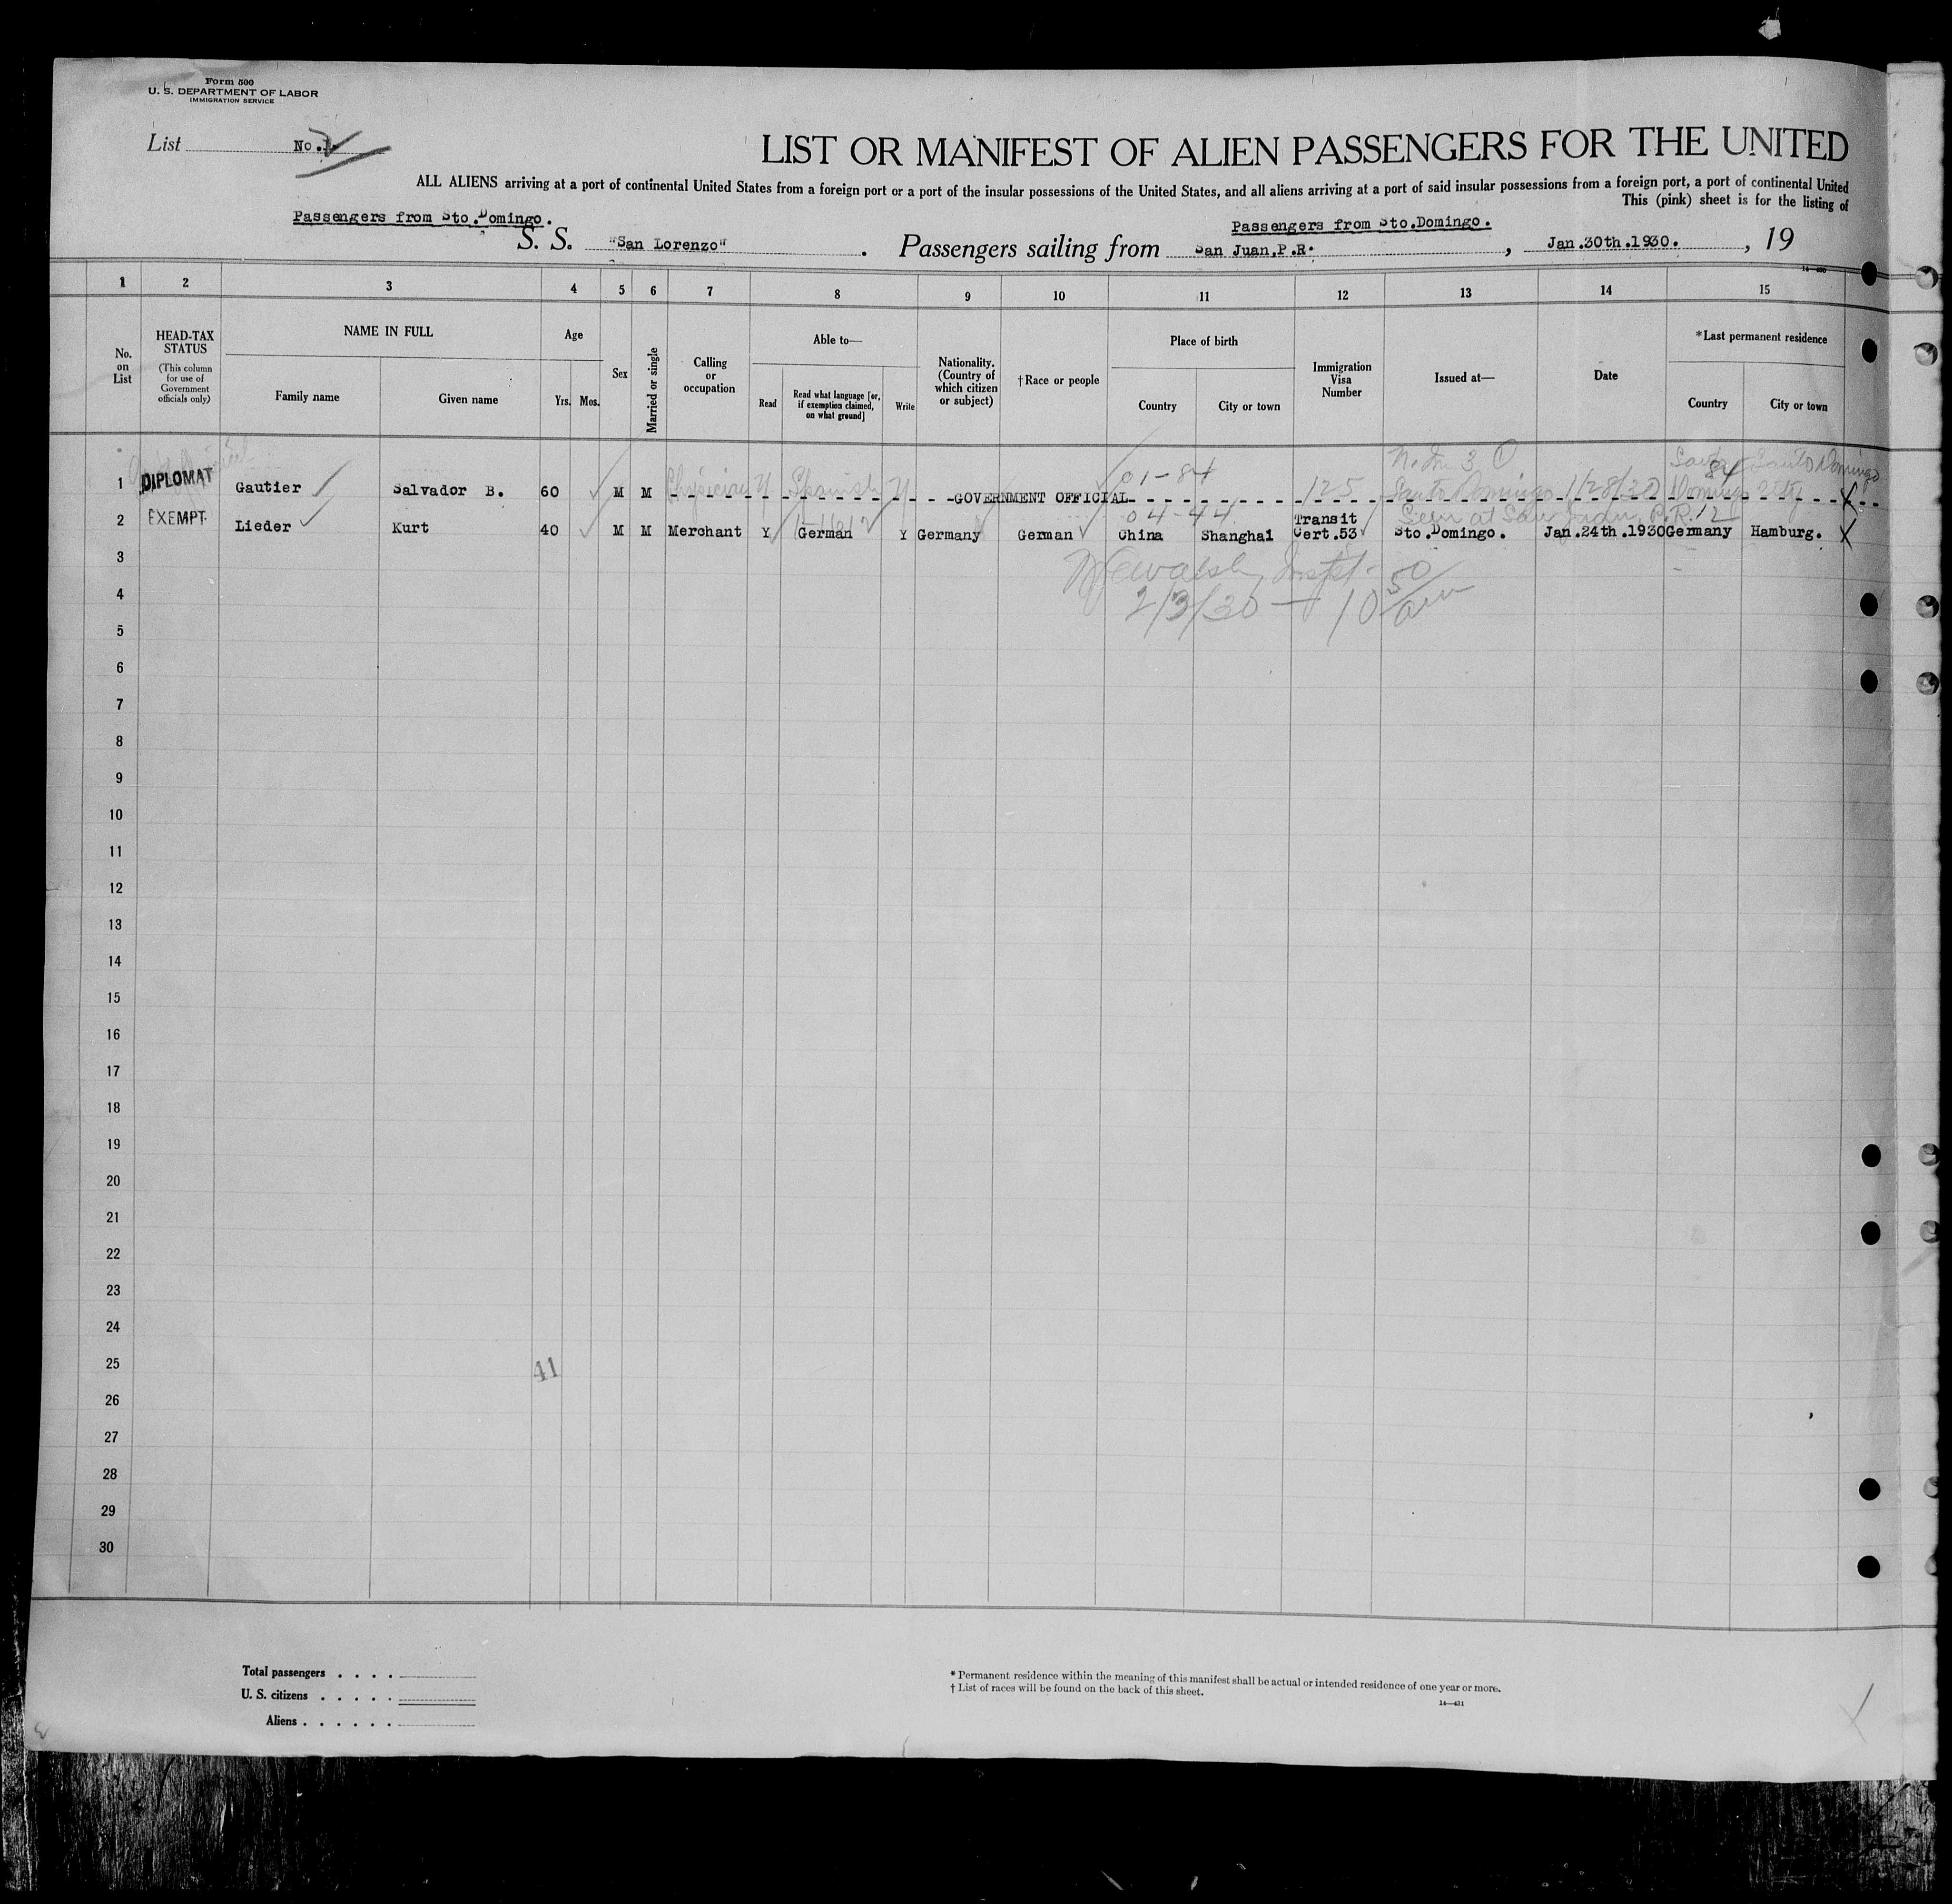 Form 500
U. S. DEPARTMENT OF LABOR
IMMIGRATION SERVICE
List No.
LIST OR MANIFEST OF ALIEN PASSENGERS FOR THE UNITED
ALL ALIENS arriving at a port of continental United States from a foreign port or a port of the insular possessions of the United States, and all aliens arriving at a port of said insular possessions from a foreign port, a port of continental United
This (pink) sheet is for the listing of
Passengers from Sto.Domingo.
Passengers from Sto.Domingo.
S. S. "San Lorenzo". Passengers sailing from San Juan,P.R. , Jan.30th.1930. , 19
1 2 3 4 5 6 7 8 9 10 11 12 13 14 15
No. on List
HEAD-TAX STATUS
(This column for use of Government officials only)
NAME IN FULL
Family name
Given name
Age
Yrs. Mos.
Sex
Married or single
Calling or occupation
Able to—
Read
Read what language [or, if exemption claimed, on what ground]
Write
Nationality. (Country of which citizen or subject)
†Race or people
Place of birth
Country
City or town
Immigration Visa Number
Issued at—
Date
*Last permanent residence
Country
City or town
01-84
1 DIPLOMAT Gautier Salvador B. 60 M M Physician Y Spanish Y GOVERNMENT OFFICIAL 125 Santo Domingo 1/28/30 Santo Domingo 84 Santo Domingo City X
04-44
Seen at San Juan, P.R. 12
2 EXEMPT Lieder Kurt 40 M M Merchant Y German Y Germany German China Shanghai Transit Cert.53 Sto.Domingo. Jan.24th.1930 Germany Hamburg. X
3
4 2/3/30 — 10 50/am
5
6
7
8
9
10
11
12
13
14
15
16
17
18
19
20
21
22
23
24
25 41
26
27
28
29
30
Total passengers . . . .
U. S. citizens . . . . .
Aliens . . . . . .
* Permanent residence within the meaning of this manifest shall be actual or intended residence of one year or more.
† List of races will be found on the back of this sheet.
14—431